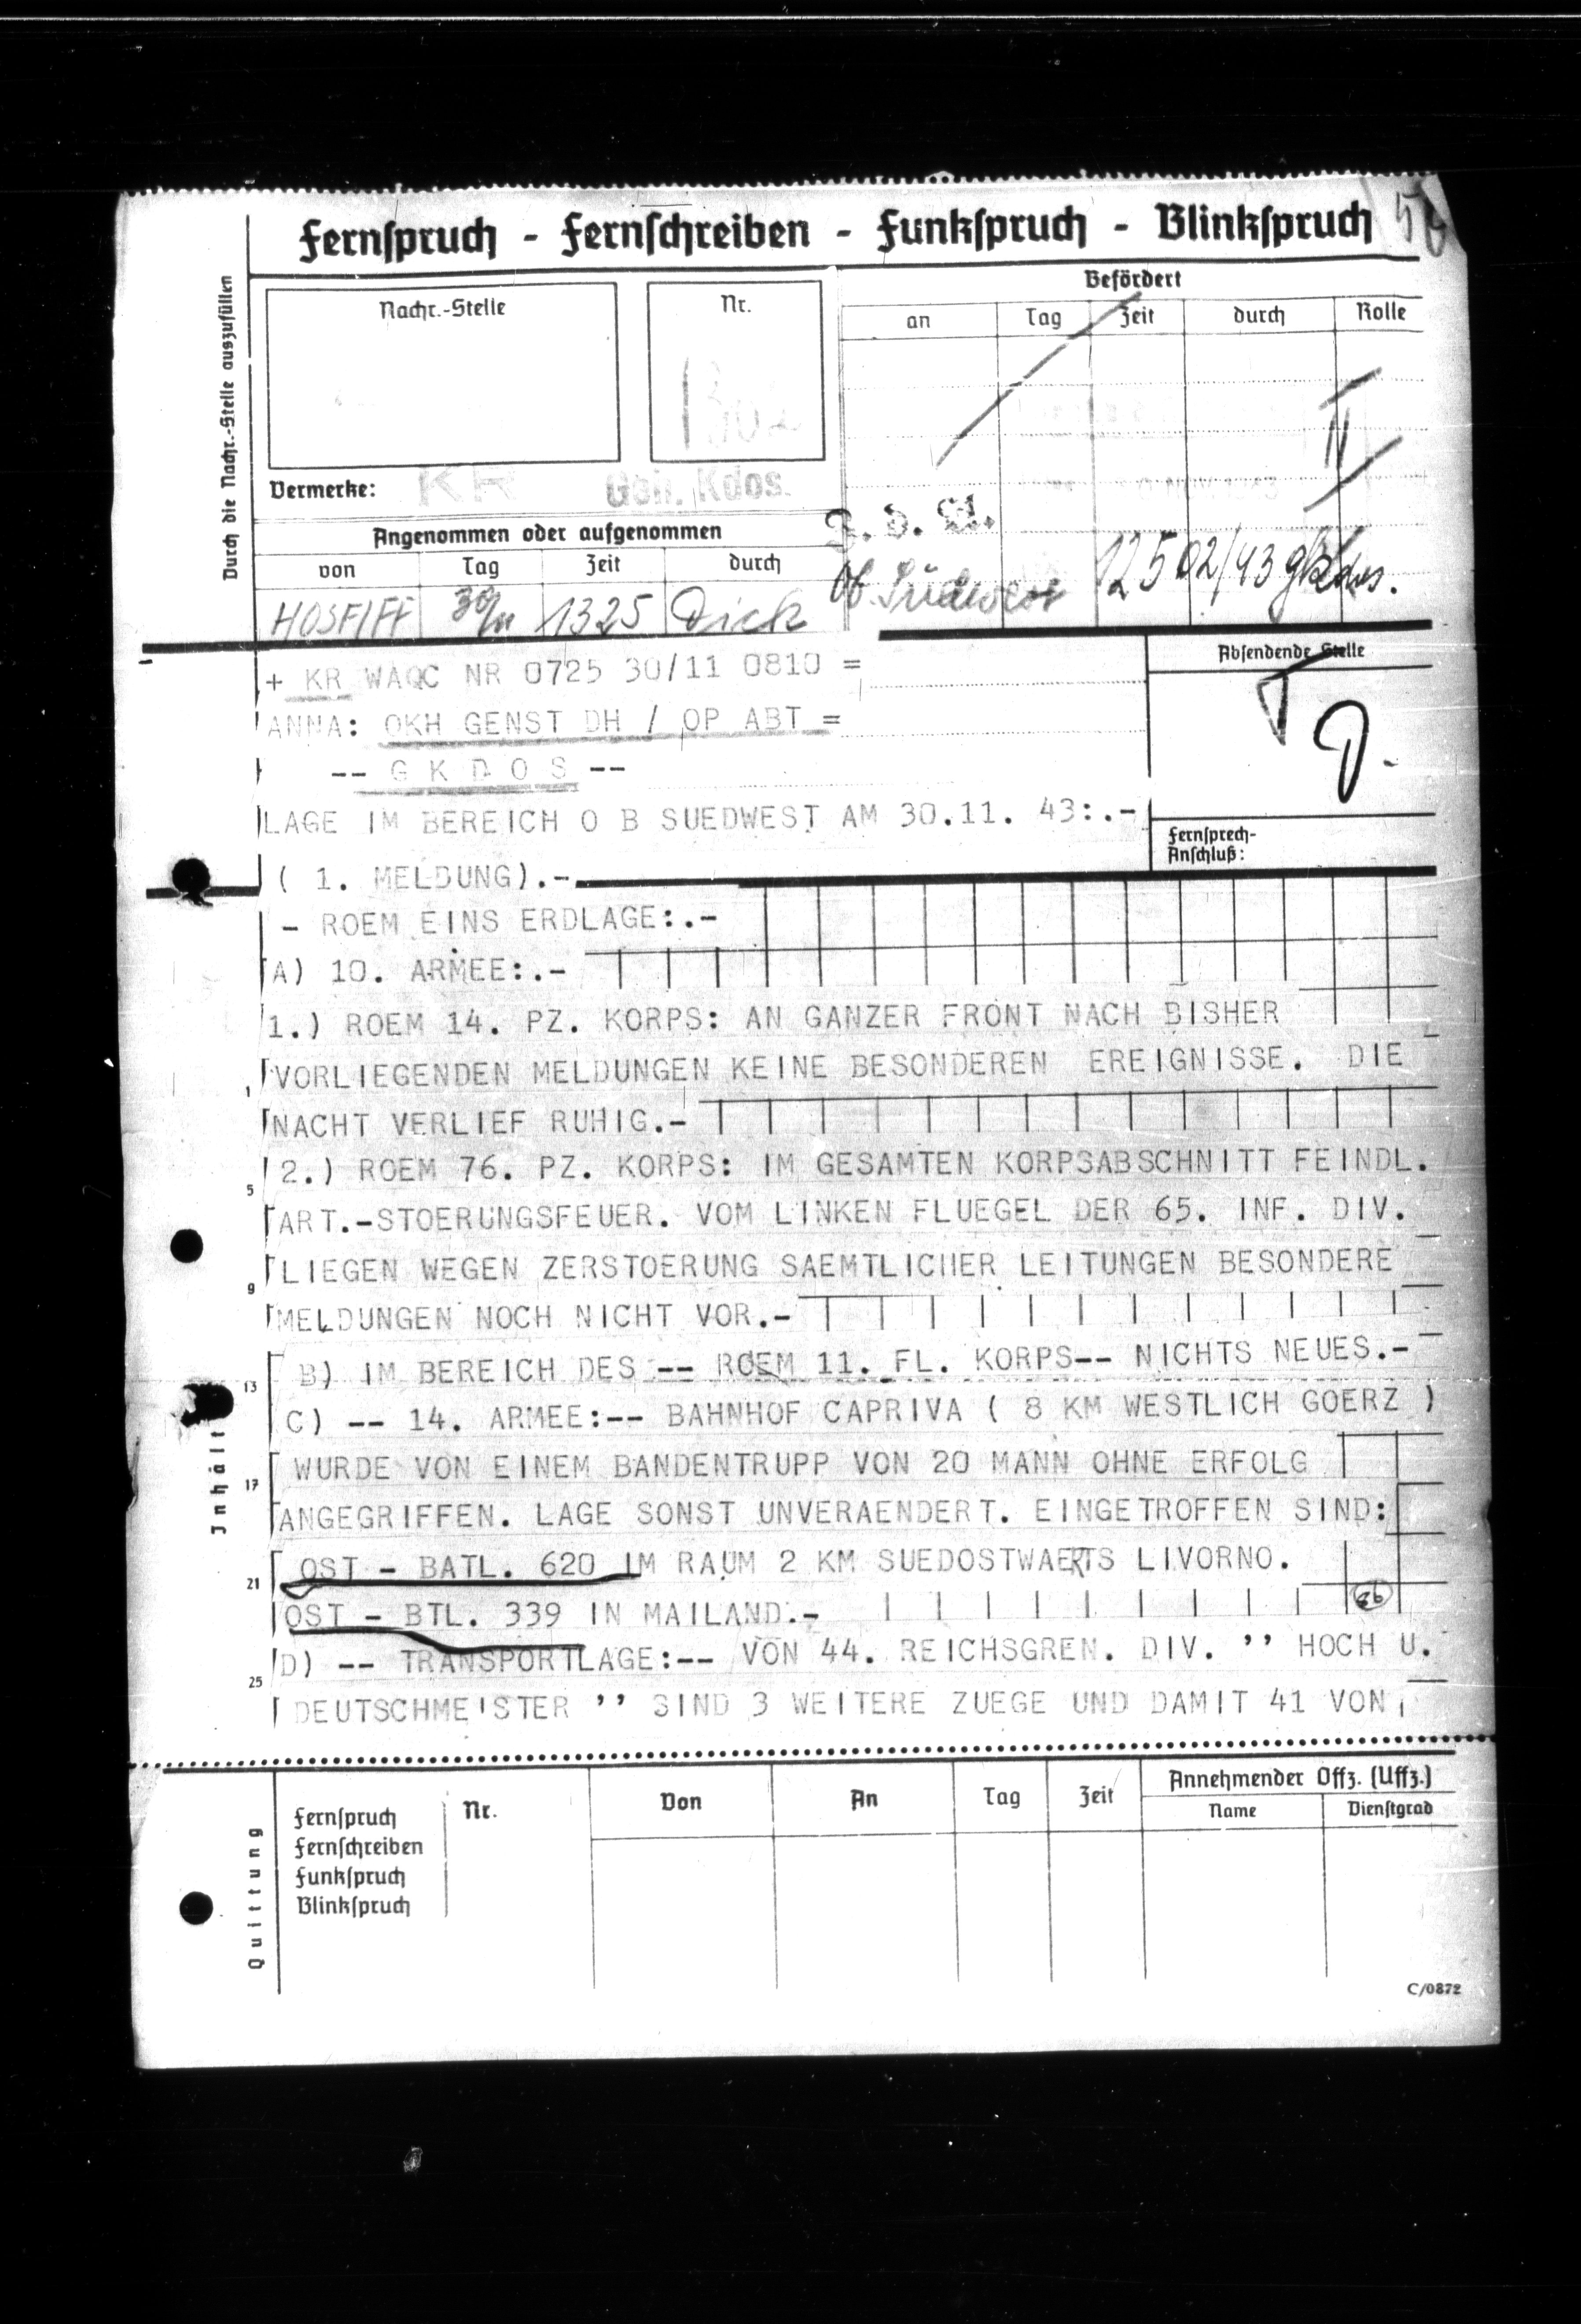 Fernspruch - Fernschreiben - Funkspruch - Blinkspruch
Durch die Nachr.-Stelle auszufüllen
Nachr.-Stelle
Nr.
1302
Befördert
an Tag Zeit durch Rolle
II
Vermerke: KR Geh. Kdos.
Angenommen oder aufgenommen
von Tag Zeit durch
HOSFIFF 30/11 1325 Dick
Z. d. A.
Ob. Südwest 12502/43 gKdos.
Absendende Stelle
+ KR WAQC NR 0725 30/11 0810 =
ANNA: OKH GENST DH / OP ABT =
-- G K D O S --
LAGE IM BEREICH O B SUEDWEST AM 30.11. 43:.-
Fernsprech-
Anschluß:
( 1. MELDUNG).-
- ROEM EINS ERDLAGE:.-
A) 10. ARMEE:.-
1.) ROEM 14. PZ. KORPS: AN GANZER FRONT NACH BISHER
VORLIEGENDEN MELDUNGEN KEINE BESONDEREN EREIGNISSE. DIE
1
NACHT VERLIEF RUHIG.-
2.) ROEM 76. PZ. KORPS: IM GESAMTEN KORPSABSCHNITT FEINDL.
5
ART.-STOERUNGSFEUER. VOM LINKEN FLUEGEL DER 65. INF. DIV.
LIEGEN WEGEN ZERSTOERUNG SAEMTLICHER LEITUNGEN BESONDERE
9
MELDUNGEN NOCH NICHT VOR.-
B) IM BEREICH DES -- ROEM 11. FL. KORPS-- NICHTS NEUES.-
13
C) -- 14. ARMEE:-- BAHNHOF CAPRIVA ( 8 KM WESTLICH GOERZ )
WURDE VON EINEM BANDENTRUPP VON 20 MANN OHNE ERFOLG
17
ANGEGRIFFEN. LAGE SONST UNVERAENDERT. EINGETROFFEN SIND:
Inhalt
OST - BATL. 620 IM RAUM 2 KM SUEDOSTWAERTS LIVORNO.
21
OST - BTL. 339 IN MAILAND.-
D) -- TRANSPORTLAGE:-- VON 44. REICHSGREN. DIV. '' HOCH U.
25
DEUTSCHMEISTER '' SIND 3 WEITERE ZUEGE UND DAMIT 41 VON
Quittung
Fernspruch
Fernschreiben
Funkspruch
Blinkspruch
Nr. Von An Tag Zeit
Annehmender Offz. (Uffz.)
Name Dienstgrad
C/0872